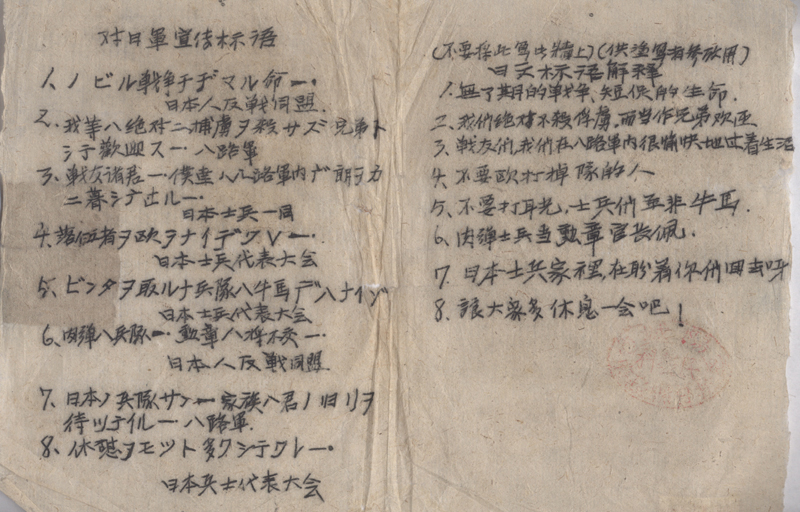 对日軍宣传标语
1、ノビル戦争チヂマル命一・
日本人反戦同盟.
2、我等ハ絶対ニ捕虜ヲ殺サズ兄弟ト
シテ歓迎ス一・八路軍
3、戦友諸君一・僕達ハ八路軍内デ朗ヲカ
ニ暮シテ丗ル一・
日本士兵一同
4、落伍者ヲ欧ヲナイデクレ一・
日本士兵代表大会
5、ビンタヲ取ルナ兵隊ハ牛馬デハナイゾ
日本士兵代表大会
6、肉弾ハ兵隊一・勲章ハ将校一・
日本人反戦同盟
7、日本ノ兵隊サン一 家族ハ君ノ归リヲ
待ツテイル一 八路軍.
8、休憩ヲモット多クシテクレ一・
日本兵士代表大会
(不要採此寫出牆上)(供塗寫者參攷用)
日文标语解释
1.無了期的戦争、短促的生命.
2、我們絶对不殺俘虜,而当作兄弟欢迎
3、戦友們,我們在八路軍内很愉快地过着生活
4、不要欧打掉隊的人
5、不要打耳光,士兵們並非牛馬.
6、肉弾士兵当勲章官长佩.
7、日本士兵家裡,在盼着你們回去呀
8、讓大家多休息一会吧!